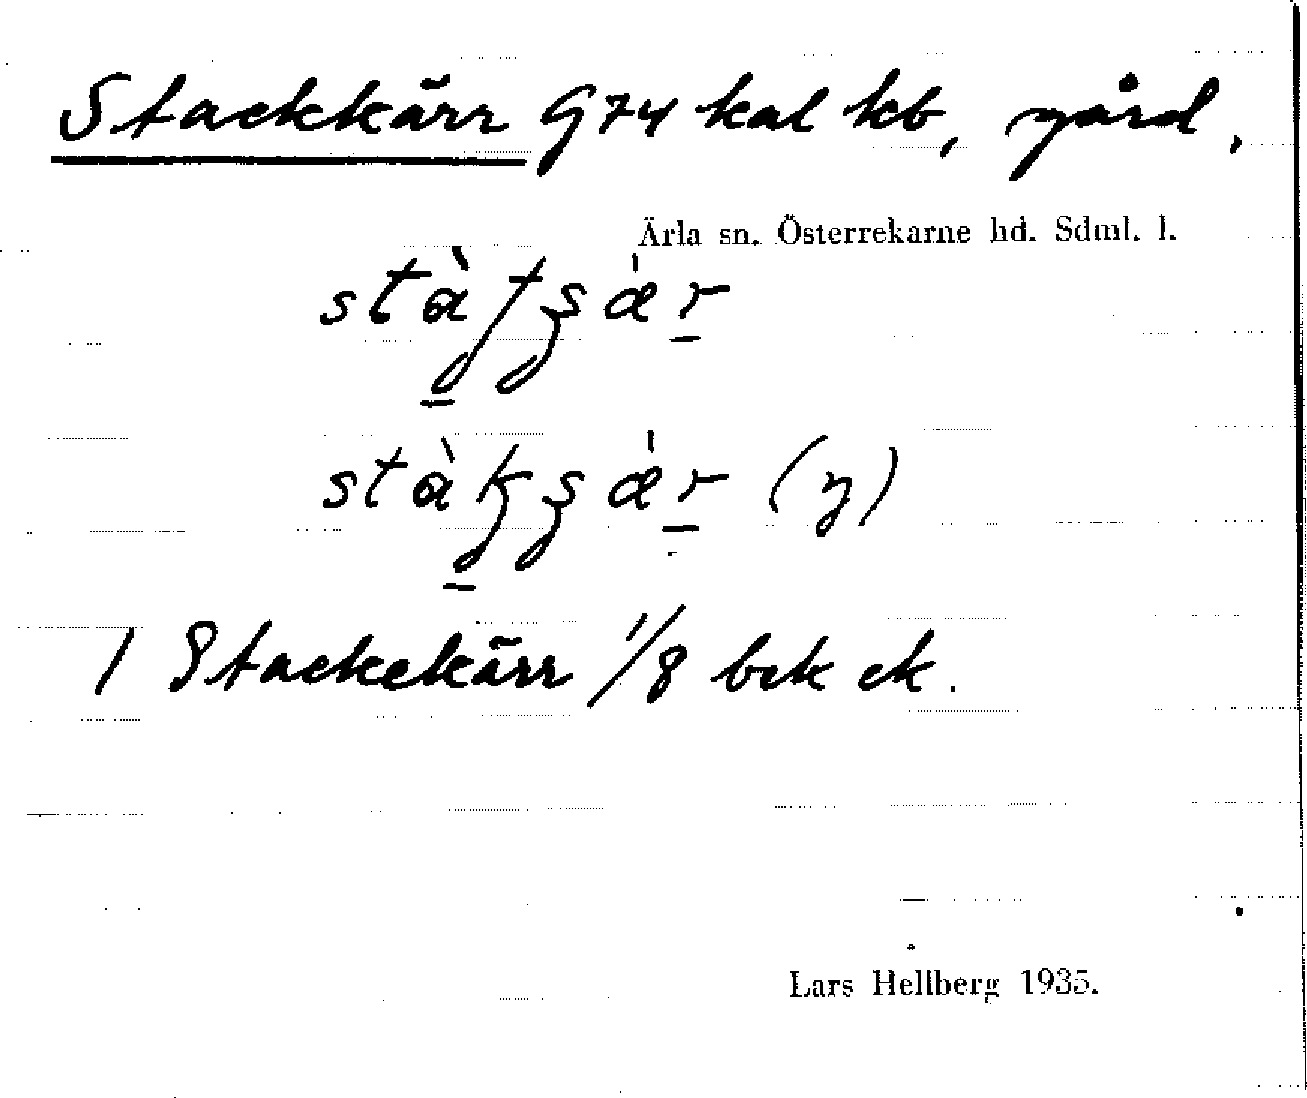 Stackkärr G74 kal kb, gård.
Ärla sn. Österrekarne hd. Sdml. l.
(y)
1 Stackekärr 1/8 bek ek.
Lars Hellberg 1935.